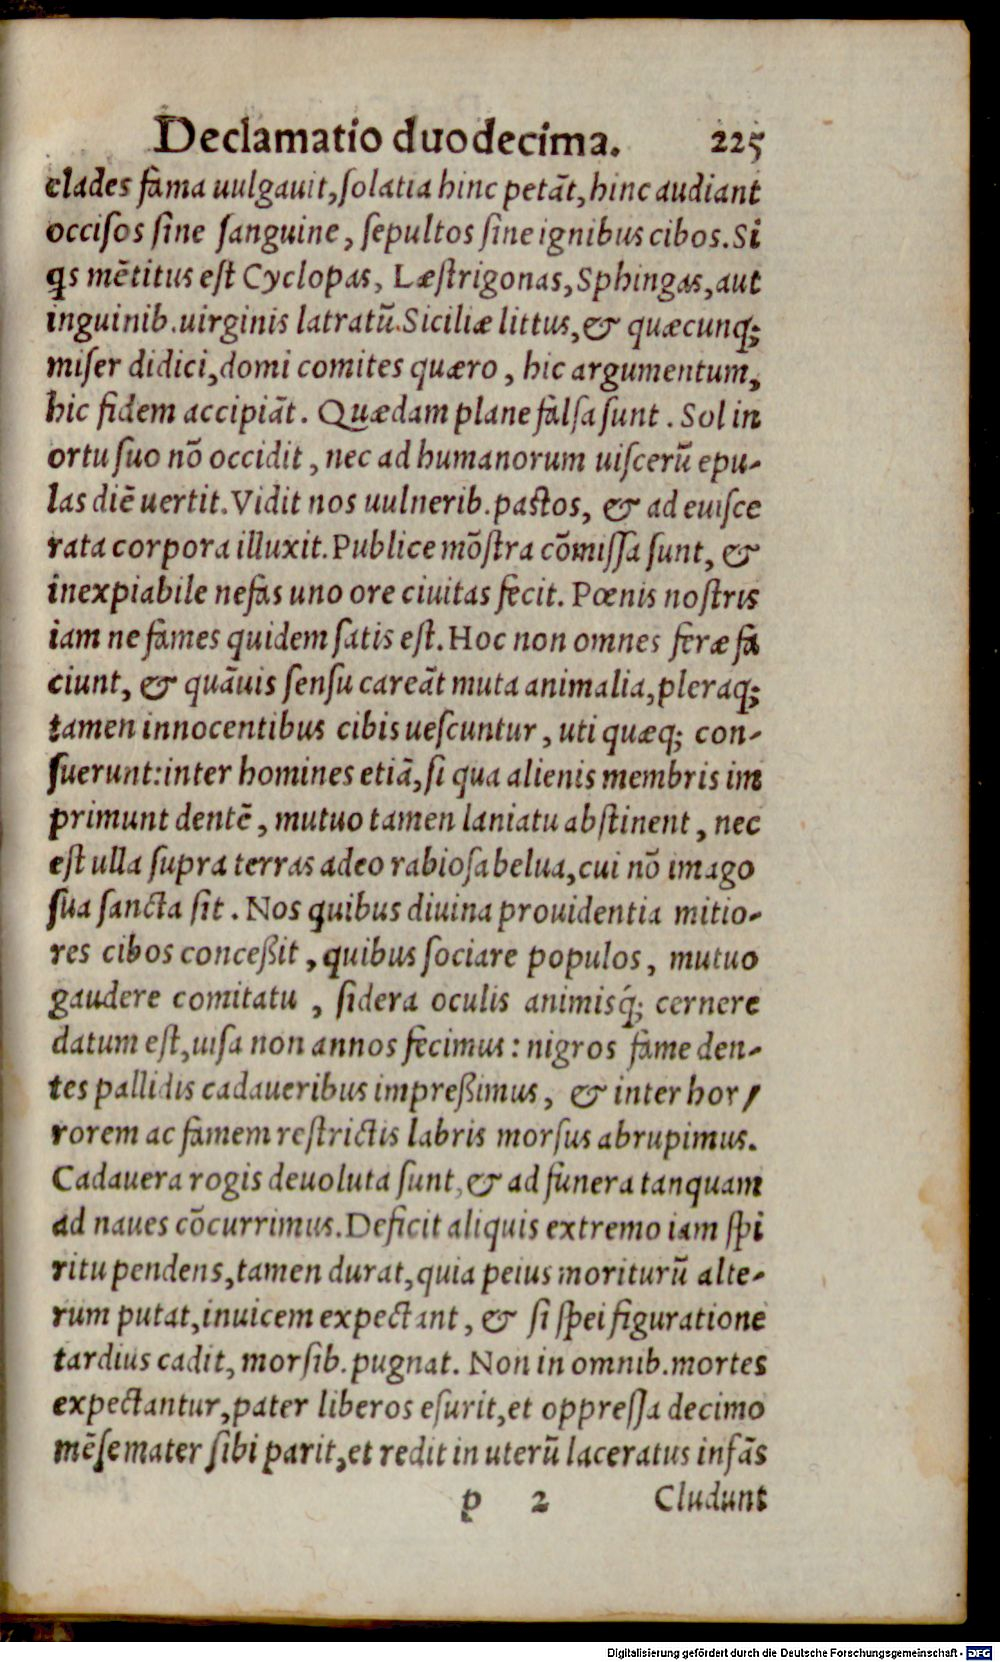 Declamatio duodecima. 225
clades fama uulgauit, ſolatia hinc petāt, hinc audiant
occiſos ſine ſanguine, ſepultos ſine ignibus cibos. Si
qs mētitus eſt Cyclopas, Læſtrigonas, Sphingas, aut
inguinib. uirginis latratū Siciliæ littus, & quæcunq;
miſer didici, domi comites quæro, hic argumentum,
hic fidem accipiāt. Quædam plane falſa ſunt. Sol in
ortu ſuo nō occidit, nec ad humanorum uiſcerū epu-
las diē uertit. Vidit nos uulnerib. paſtos, & ad euiſce
rata corpora illuxit. Publice mōſtra cōmiſſa ſunt, &
inexpiabile nefas uno ore ciuitas fecit. Pœnis noſtris
iam ne fames quidem ſatis eſt. Hoc non omnes feræ fa
ciunt, & quāuis ſenſu careāt muta animalia, pleraq;
tamen innocentibus cibis ueſcuntur, uti quæq; con-
ſuerunt: inter homines etiā, ſi qua alienis membris im
primunt dentē, mutuo tamen laniatu abſtinent, nec
eſt ulla ſupra terras adeo rabioſa belua, cui nō imago
ſua ſancta ſit. Nos quibus diuina prouidentia mitio-
res cibos conceßit, quibus ſociare populos, mutuo
gaudere comitatu, ſidera oculis animisq́; cernere
datum eſt, uiſa non annos fecimus: nigros fame den-
tes pallidis cadaueribus impreßimus, & inter hor/
rorem ac famem reſtrictis labris morſus abrupimus.
Cadauera rogis deuoluta ſunt, & ad funera tanquam
ad naues cōcurrimus. Deficit aliquis extremo iam ſpi
ritu pendens, tamen durat, quia peius moriturū alte-
rum putat, inuicem expectant, & ſi ſpei figuratione
tardius cadit, morſib. pugnat. Non in omnib. mortes
expectantur, pater liberos eſurit, et oppreſſa decimo
mēſe mater ſibi parit, et redit in uterū laceratus infās
p 2 Cludunt
Digitalisierung gefördert durch die Deutsche Forschungsgemeinschaft - DFG